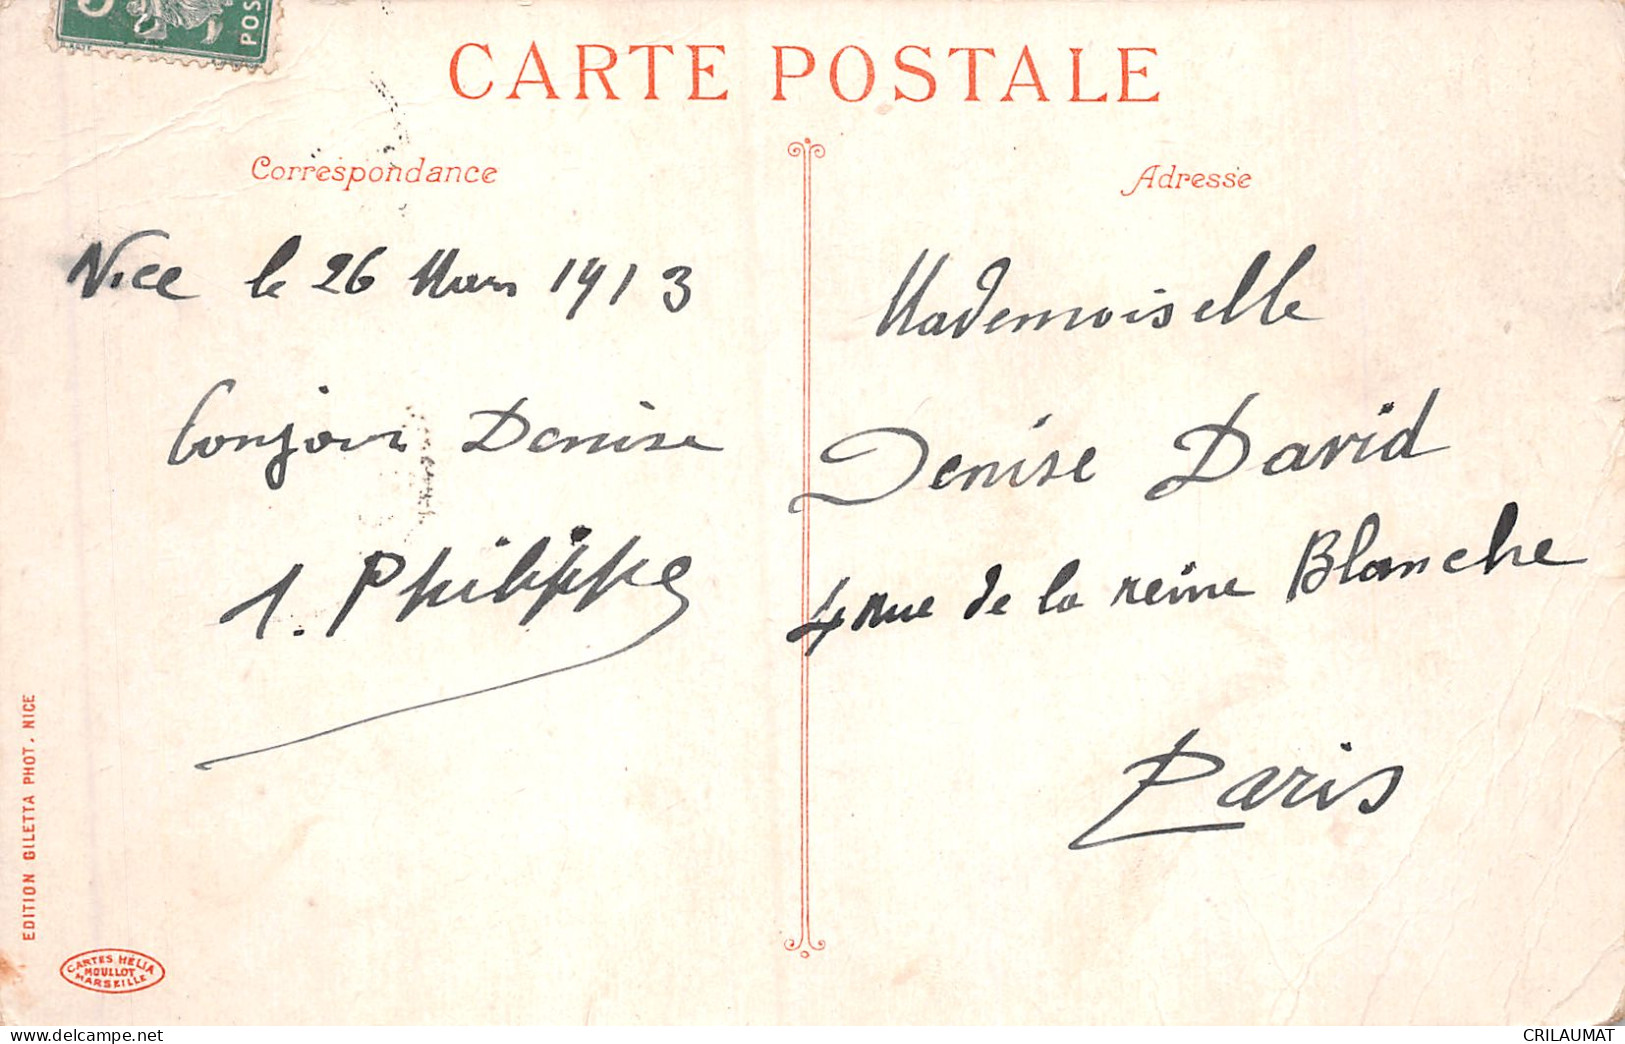 POS
CARTE POSTALE
Correspondance
Nice le 26 Mars 1913
Bonjour Denise
A. Philippe
Adresse
Mademoiselle
Denise David
4 rue de la reine Blanche
Paris
EDITION GILETTA PHOT, NICE
CARTES HÉLIA
MOULLOT
MARSEILLE
www.delcampe.net
CRILAUMAT